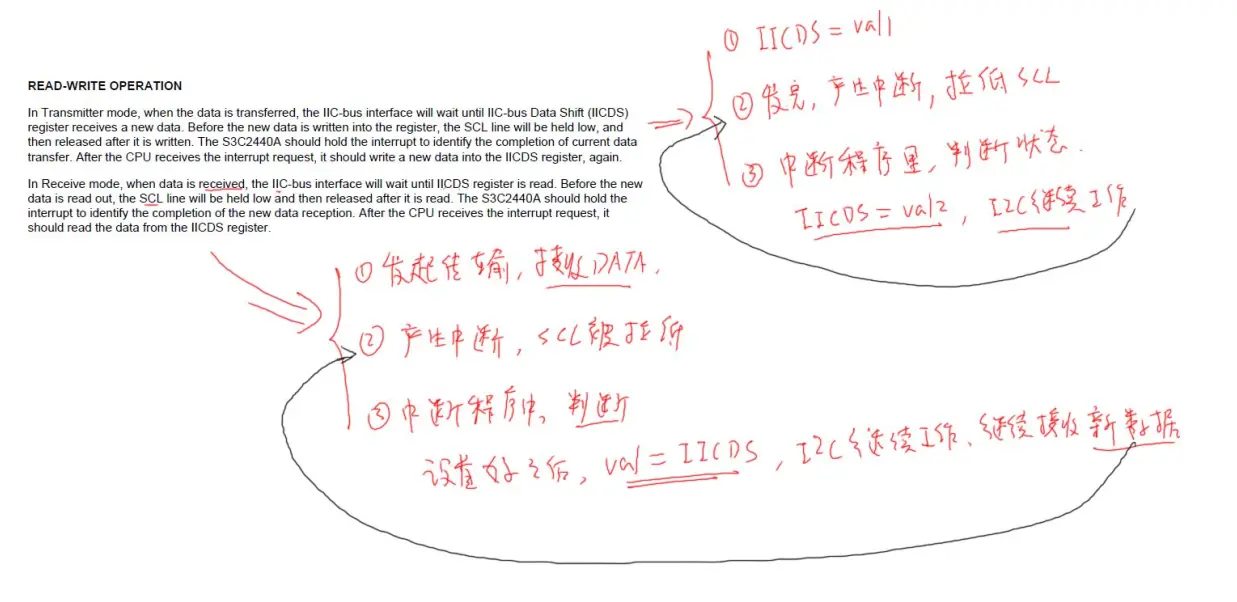 READ-WRITE OPERATION
In Transmitter mode, when the data is transferred, the IIC-bus interface will wait until IIC-bus Data Shift (IICDS)
register receives a new data. Before the new data is written into the register, the SCL line will be held low, and
then released after it is written. The S3C2440A should hold the interrupt to identify the completion of current data
transfer. After the CPU receives the interrupt request, it should write a new data into the IICDS register, again.
In Receive mode, when data is received, the IIC-bus interface will wait until IICDS register is read. Before the new
data is read out, the SCL line will be held low and then released after it is read. The S3C2440A should hold the
interrupt to identify the completion of the new data reception. After the CPU receives the interrupt request, it
should read the data from the IICDS register.
① IICDS = val1
② 发完, 产生中断, 拉低 SCL
③ 中断程序里, 判断状态.
IICDS = val2, I2C继续工作
① 发起传输, 接收DATA,
② 产生中断, SCL被拉低
③ 中断程序中, 判断
设置好之后, val = IICDS, I2C继续工作、继续接收新数据